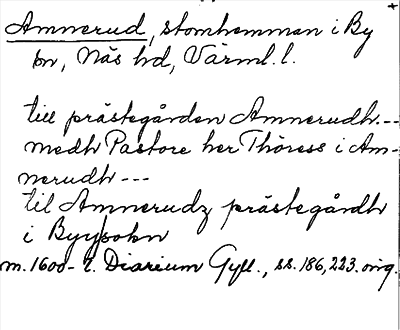 Amnerud, stomhemman i By
sn, Näs hd, Värml. l.
till prästegården Amnerudh.--
medh Pastore her Thöress i Am-
nerudh ---
til Amnerudz prästegårdh
i Byysokn
m. 1600-t. Diarium Gyll., ss. 186, 223. orig.